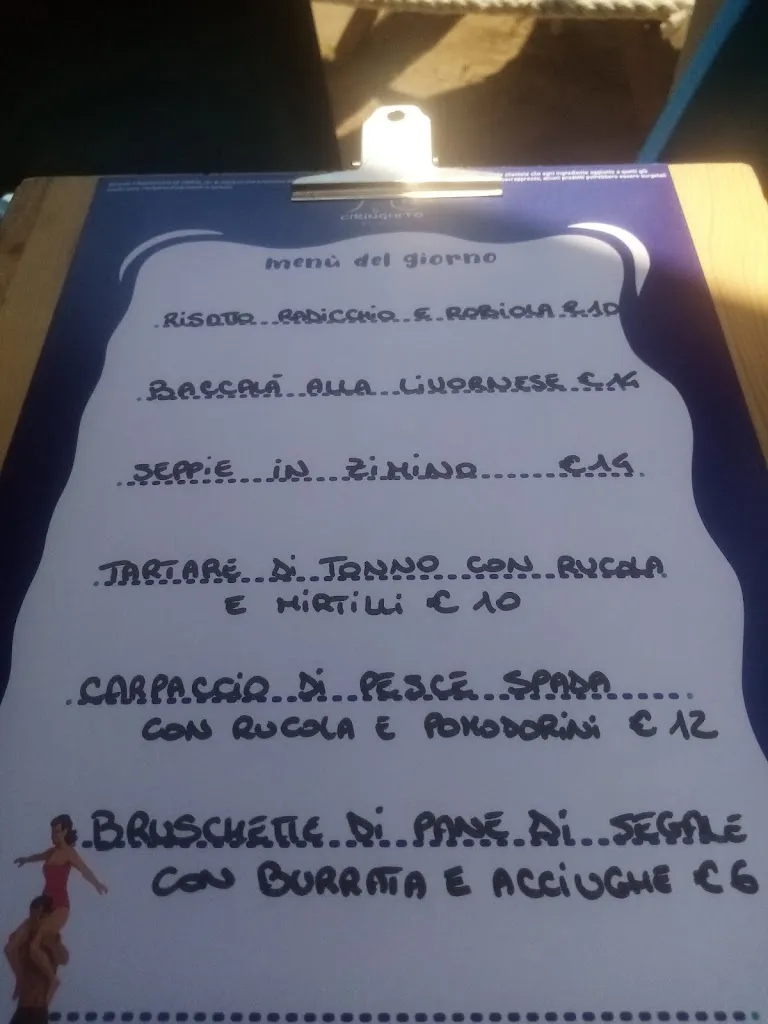 CHIRINGHITO
menù del giorno
RISOTTO RADICCHIO E ROBIOLA € 10
BACCALÀ ALLA LIVORNESE € 14
SEPPIE IN ZIMINO € 14
TARTARE DI TONNO CON RUCOLA
E MIRTILLI € 10
CARPACCIO DI PESCE SPADA
CON RUCOLA E POMODORINI € 12
BRUSCHETTE DI PANE DI SEGALE
CON BURRATA E ACCIUGHE € 6